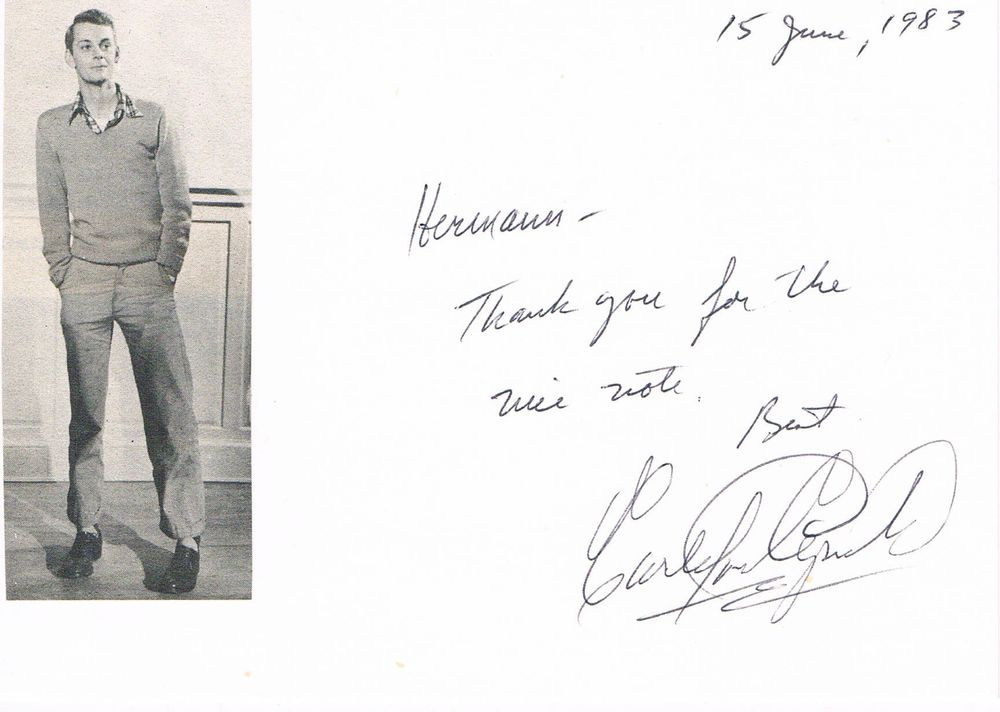 15 June, 1983
Hermann -
Thank you for the
nice note.
Best